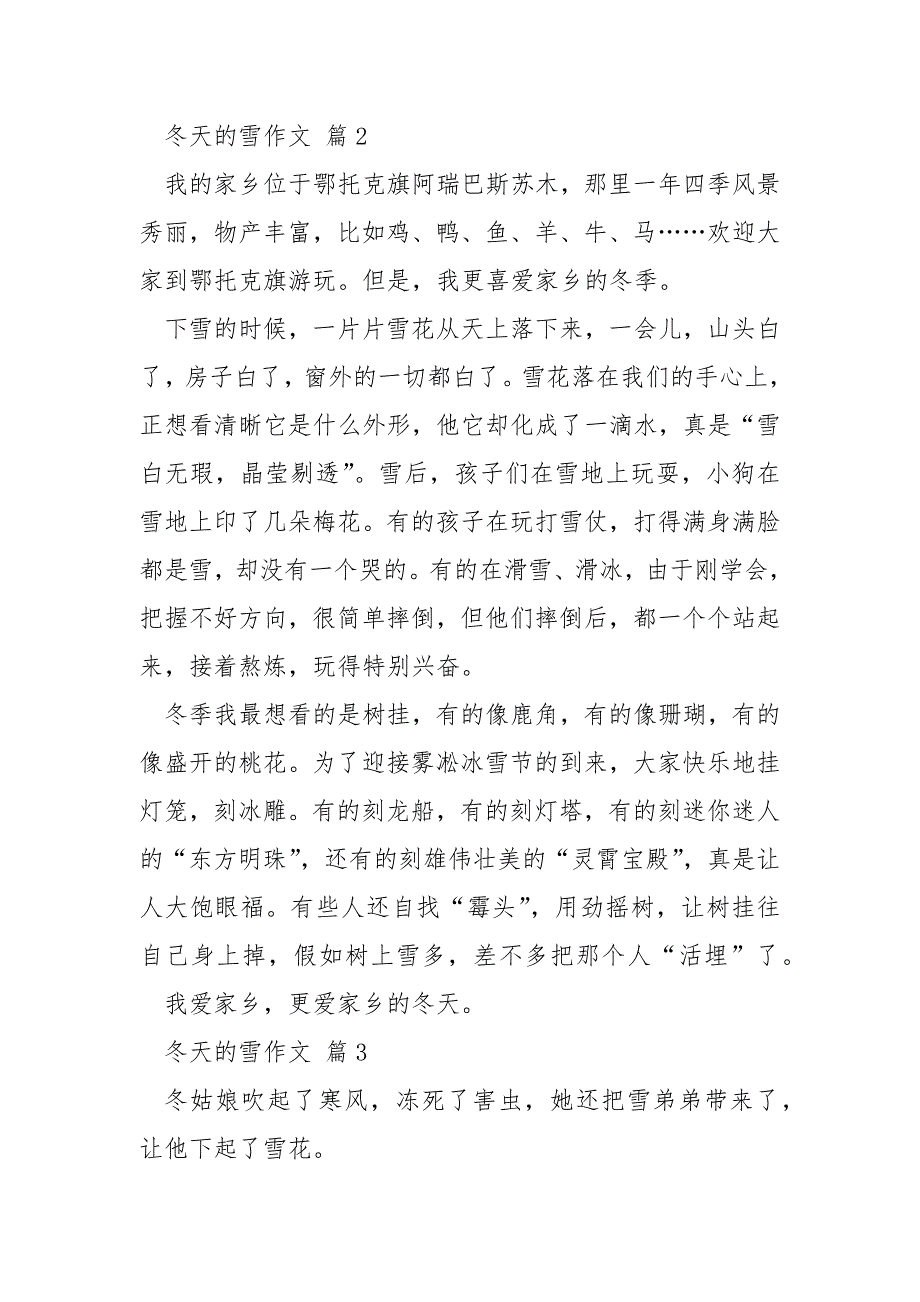 冬天的雪作文 篇2
我的家乡位于鄂托克旗阿瑞巴斯苏木，那里一年四季风景
秀丽，物产丰富，比如鸡、鸭、鱼、羊、牛、马……欢迎大
家到鄂托克旗游玩。但是，我更喜爱家乡的冬季。
下雪的时候，一片片雪花从天上落下来，一会儿，山头白
了，房子白了，窗外的一切都白了。雪花落在我们的手心上，
正想看清晰它是什么外形，他它却化成了一滴水，真是“雪
白无瑕，晶莹剔透”。雪后，孩子们在雪地上玩耍，小狗在
雪地上印了几朵梅花。有的孩子在玩打雪仗，打得满身满脸
都是雪，却没有一个哭的。有的在滑雪、滑冰，由于刚学会，
把握不好方向，很简单摔倒，但他们摔倒后，都一个个站起
来，接着熬炼，玩得特别兴奋。
冬季我最想看的是树挂，有的像鹿角，有的像珊瑚，有的
像盛开的桃花。为了迎接雾凇冰雪节的到来，大家快乐地挂
灯笼，刻冰雕。有的刻龙船，有的刻灯塔，有的刻迷你迷人
的“东方明珠”，还有的刻雄伟壮美的“灵霄宝殿”，真是让
人大饱眼福。有些人还自找“霉头”，用劲摇树，让树挂往
自己身上掉，假如树上雪多，差不多把那个人“活埋”了。
我爱家乡，更爱家乡的冬天。
冬天的雪作文 篇3
冬姑娘吹起了寒风，冻死了害虫，她还把雪弟弟带来了，
让他下起了雪花。